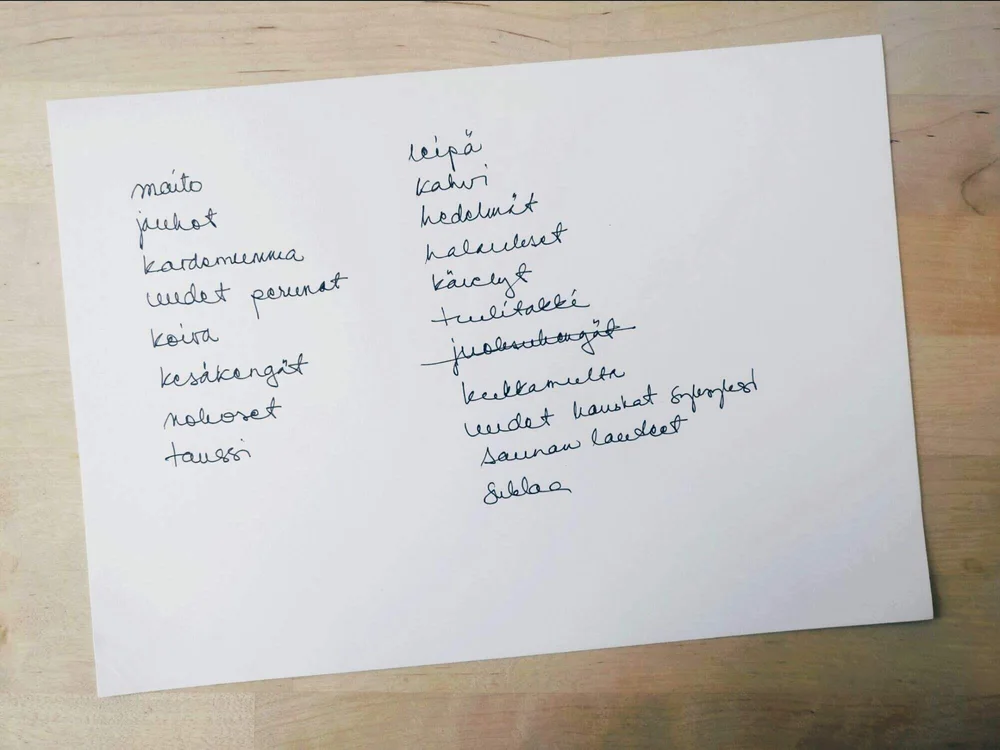 maito
jauhot
kardemumma
uudet perunat
koira
kesäkengät
nokoset
tanssi
leipä
kahvi
hedelmät
halaukset
kävelyt
tuulitakki
juoksukengät
kukkamulta
uudet hauskat
saunan lauteet
suklaa